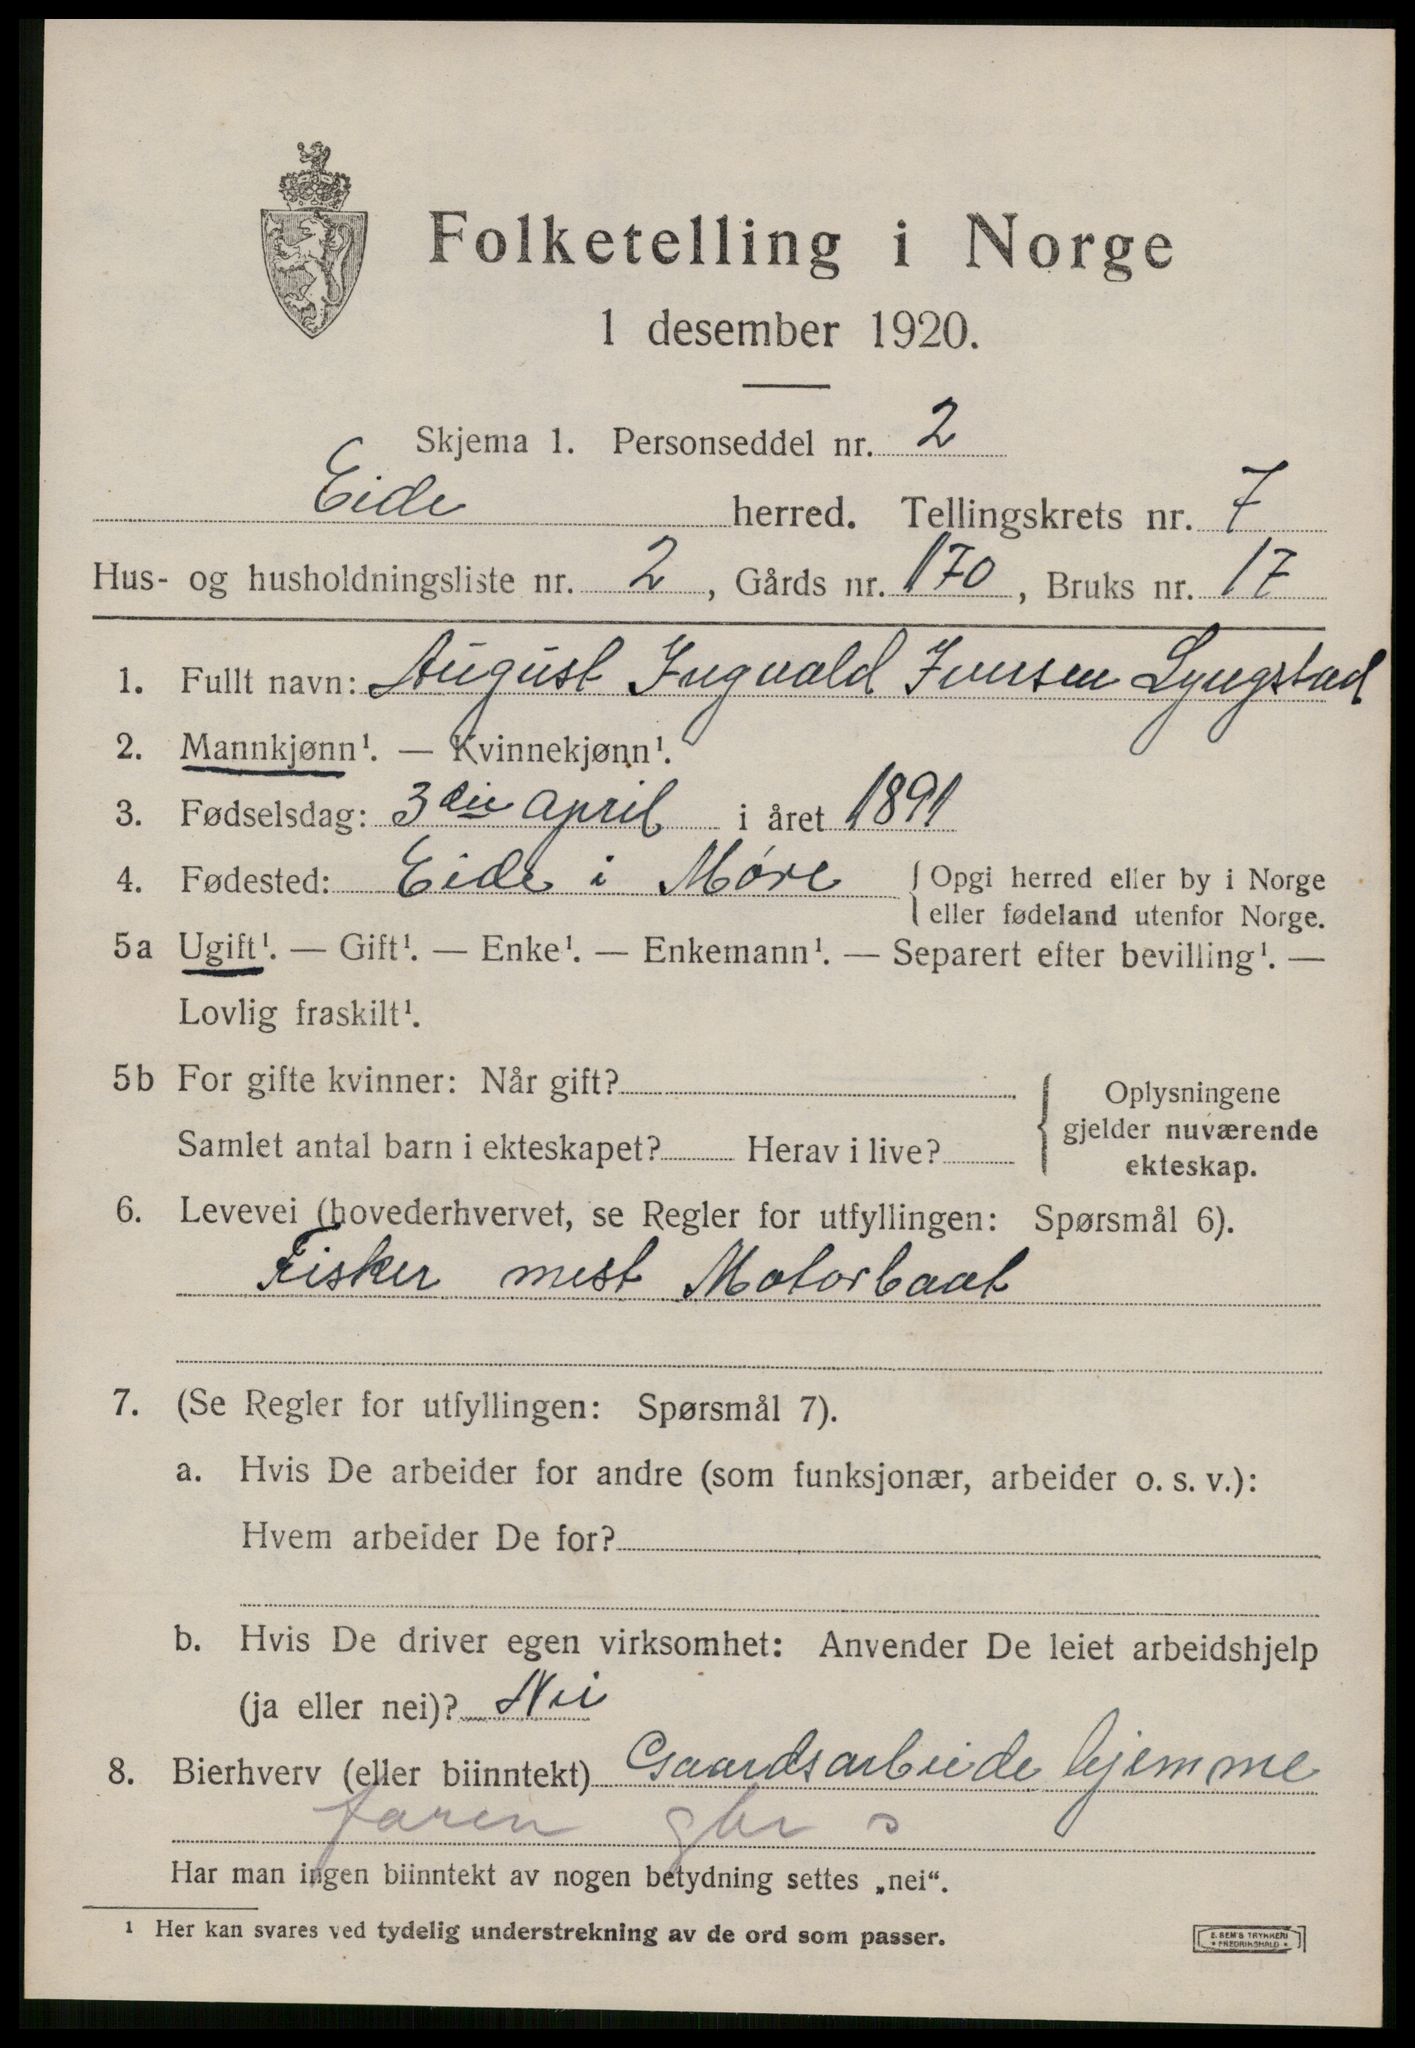 Folketelling i Norge
1 desember 1920.
Skjema 1. Personseddel nr. 2
Eide herred. Tellingskrets nr. 7
Hus- og husholdningsliste nr. 2, Gårds nr. 170, Bruks nr. 17
1. Fullt navn: August Ingvald Iversen Lyngstad
2. Mannkjønn¹. — Kvinnekjønn¹.
3. Fødselsdag: 3die april i året 1891
4. Fødested: Eide i Møre { Opgi herred eller by i Norge
eller fødeland utenfor Norge.
5a Ugift¹. — Gift¹. — Enke¹. — Enkemann¹. — Separert efter bevilling¹. —
Lovlig fraskilt¹.
5b For gifte kvinner: Når gift? { Oplysningene
gjelder nuværende
Samlet antal barn i ekteskapet? Herav i live? ekteskap.
6. Levevei (hovederhvervet, se Regler for utfyllingen: Spørsmål 6).
Fisker mest Motorbaat
7. (Se Regler for utfyllingen: Spørsmål 7).
a. Hvis De arbeider for andre (som funksjonær, arbeider o. s. v.):
Hvem arbeider De for?
b. Hvis De driver egen virksomhet: Anvender De leiet arbeidshjelp
(ja eller nei)? Nei
8. Bierhverv (eller biinntekt) Gaardsarbeide hjemme
faren gbr s
Har man ingen biinntekt av nogen betydning settes „nei“.
¹ Her kan svares ved tydelig understrekning av de ord som passer.
E. SEM'S TRYKKERI
* FREDRIKSHALD *